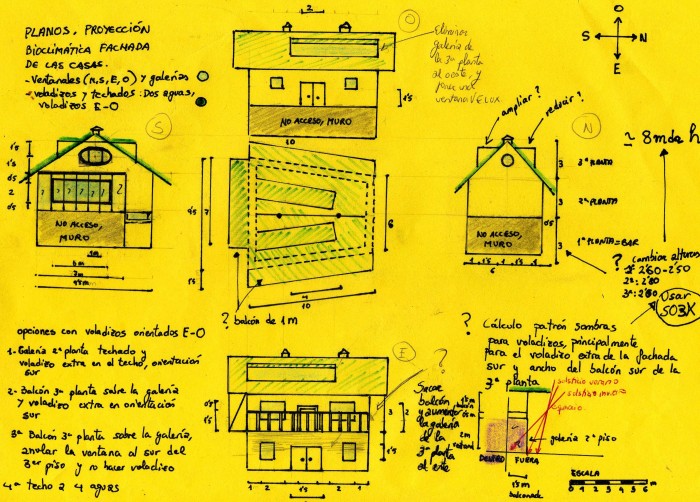 PLANOS, PROYECCIÓN
BIOCLIMÁTICA FACHADA
DE LAS CASAS.
- Ventanales (N,S,E,O) y galerías
- voladizos y techados: Dos aguas,
voladizos E-O
S
1'5
1'5
0'5
2
0'5
NO ACCESO,
MURO
2
1m
5m
7m
9'5m
2
O
Eliminar
galería de
la 3ª planta
al oeste, y
poner una
ventana VELUX
1'5
NO ACCESO, MURO
10
9'5
7
1'5
6
4
10
? balcón de 1m
O
S
N
E
ampliar?
reducir?
N
≃ 8m de h
3
3ª PLANTA
3
2ª PLANTA
0'5
3
1ª PLANTA = BAR
NO ACCESO,
MURO
1'5
6
1'5
? cambiar alturas
1ª: 2'60-2'50
2ª: 2'80
3ª: 2'80
Usar
SO3X
opciones con voladizos orientados E-O
1- Galería 2ª planta techado y
voladizo extra en el techo, orientación
sur
2- Balcón 3ª planta sobre la galería
y voladizo extra en orientación
sur
3ª Balcón 3ª planta sobre la galería,
anular la ventana al sur del
3er piso y no hacer voladizo
4ª techo a 4 aguas
E
?
0'5
1'5
3
2
1
2
2
1
Sacar
balcón
y aumentar
la galería
de la
3ª planta
al este
? Cálculo patrón sombras
para voladizos, principalmente
para el voladizo extra de la fachada
sur y ancho del balcón sur de la
3ª planta
solsticio verano
solsticio invierno
equinoccio
2m
galería 2º piso
DENTRO
FUERA
1'5m
ESCALA
0 1 2 3 4 5 6m